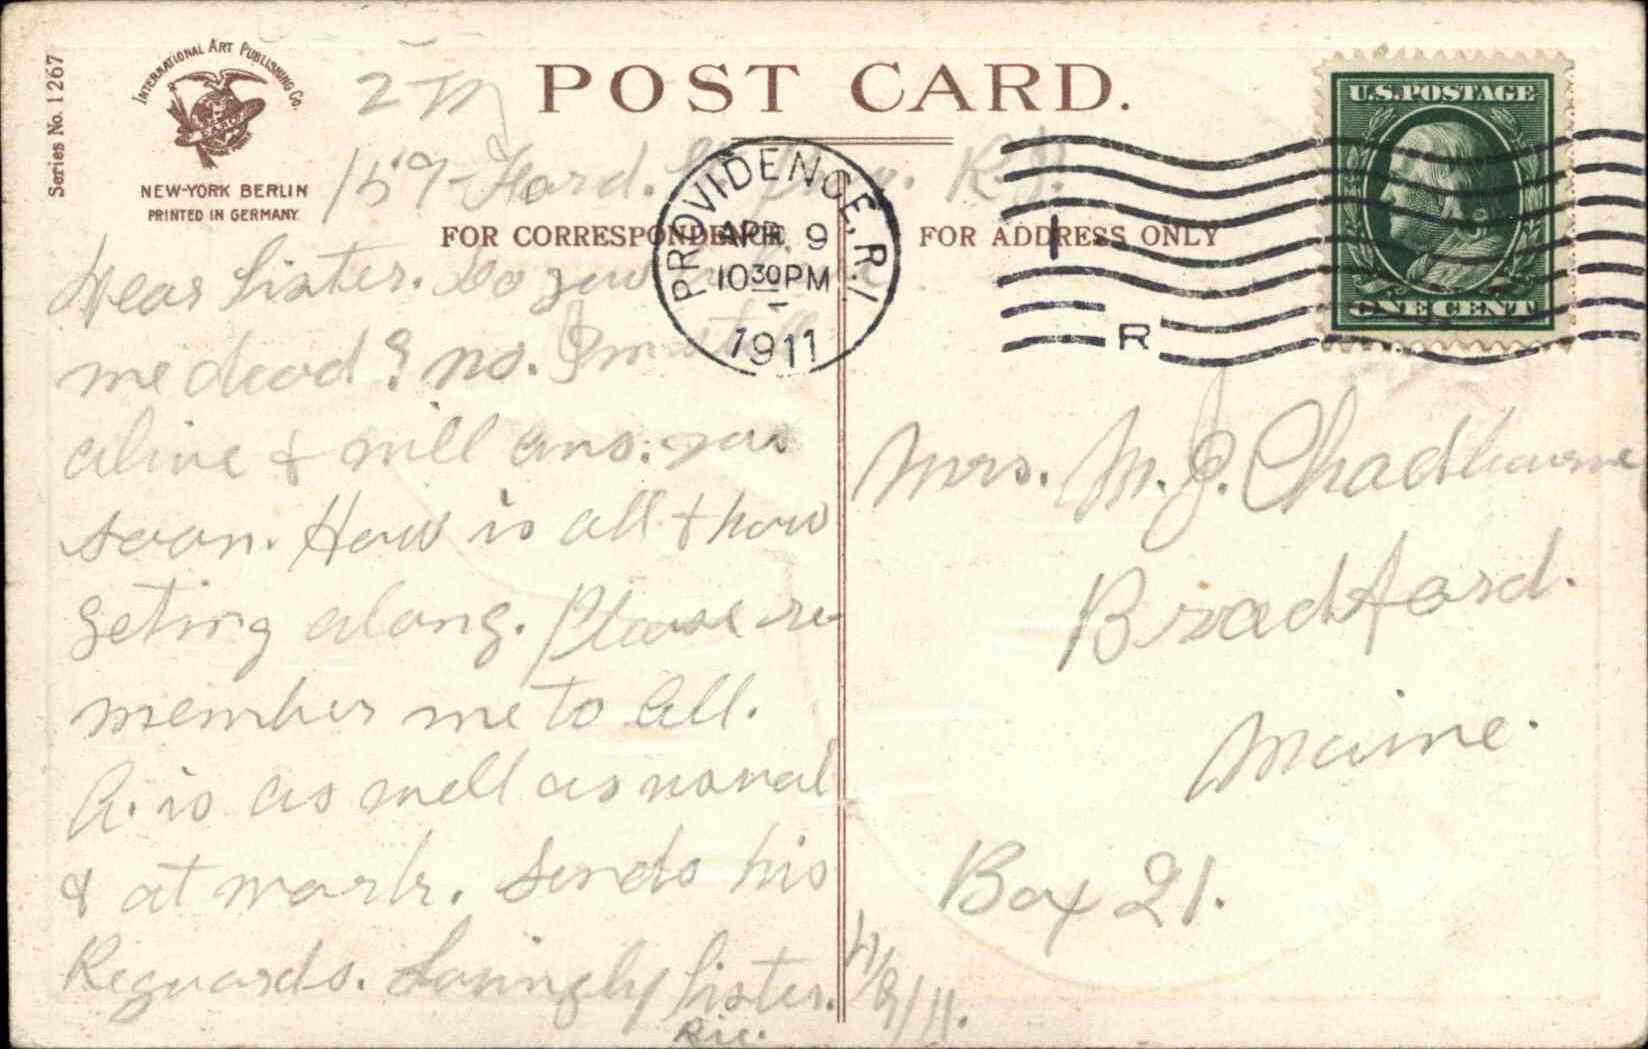 Series No. 1267
INTERNATIONAL ART PUBLISHING CO.
NEW-YORK BERLIN
PRINTED IN GERMANY
POST CARD.
159 Ford. R.I.
FOR CORRESPONDENCE
FOR ADDRESS ONLY
PROVIDENCE, R.I.
APR 9
10 30 PM
1911
R
U.S. POSTAGE
ONE CENT
Dear Sister. Do you
me dead? no. I'm still
alive & will ans. you
soon. How is all & how
geting along. Please re-
member me to all.
A. is as well as usual
& at work. Sends his
Reguards. Lovingly Sister.
Ric.
4/9/11.
Mrs. M. J. Chadbourne
Bradford.
Maine.
Box 21.